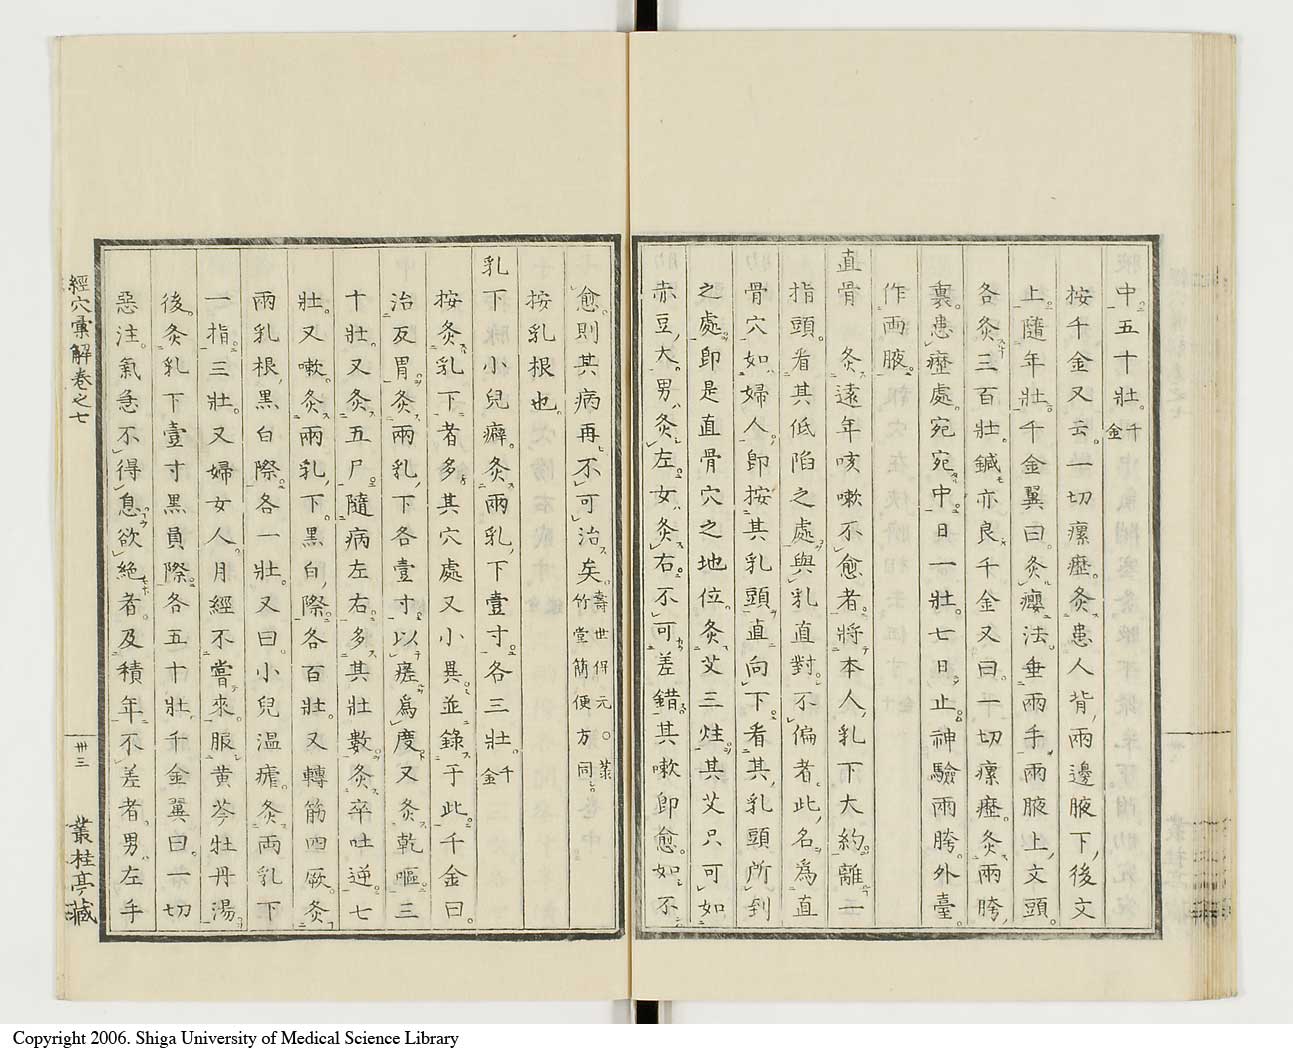 中五十壯千金
按千金又云一切瘰癧灸患人背兩邊腋下後文
上隨年壯千金翼曰灸癭法垂兩手兩腋上文頭
各灸三百壯鍼亦良千金又曰一切瘰癧灸兩胯
裏患癧處宛宛中日一壯七日止神驗兩胯外臺
作兩腋
直骨 灸遠年咳嗽不愈者將本人乳下大約離一
指頭看其低陷之處與乳直對不偏者此名為直
骨穴如婦人卽按其乳頭直向下看其乳頭所到
之處卽是直骨穴之地位灸艾三炷其艾只可如
赤豆大男灸左女灸右不可差錯其嗽卽愈如不
愈則其病再不可治矣壽世保元○菉竹堂簡便方同
按乳根也
乳下 小兒癖灸兩乳下壹寸各三壯千金
按灸乳下者多其穴處又小異並錄于此千金曰
治反胃灸兩乳下各壹寸以瘥爲度又灸乾嘔三
十壯又灸五尸隨病左右多其壯數灸卒吐逆七
壯又嗽灸兩乳下黑白際各百壯又轉筋四厥灸
兩乳根黑白際各一壯又曰小兒温瘧灸兩乳下
一指三壯又婦女人月經不嘗來服黄芩牡丹湯
後灸乳下壹寸黑員際各五十壯千金翼曰一切
惡注氣急不得息欲絕者及積年不差者男左手
經穴彙解卷之七
卅三
叢桂亭藏
Copyright 2006. Shiga University of Medical Science Library